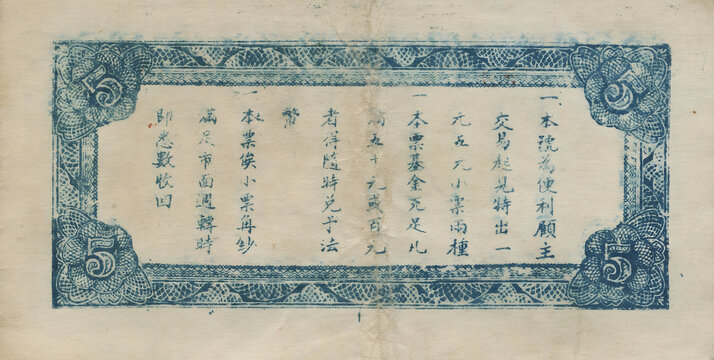 一、本號為便利顧主
交易起見特出一
元五元小票兩種
一本票基金充足凡
滿五十元或百元
者得隨時兌予法
幣
一、本票俟小票角鈔
滿足市面週轉時
即悉數收回
5
5
5
5